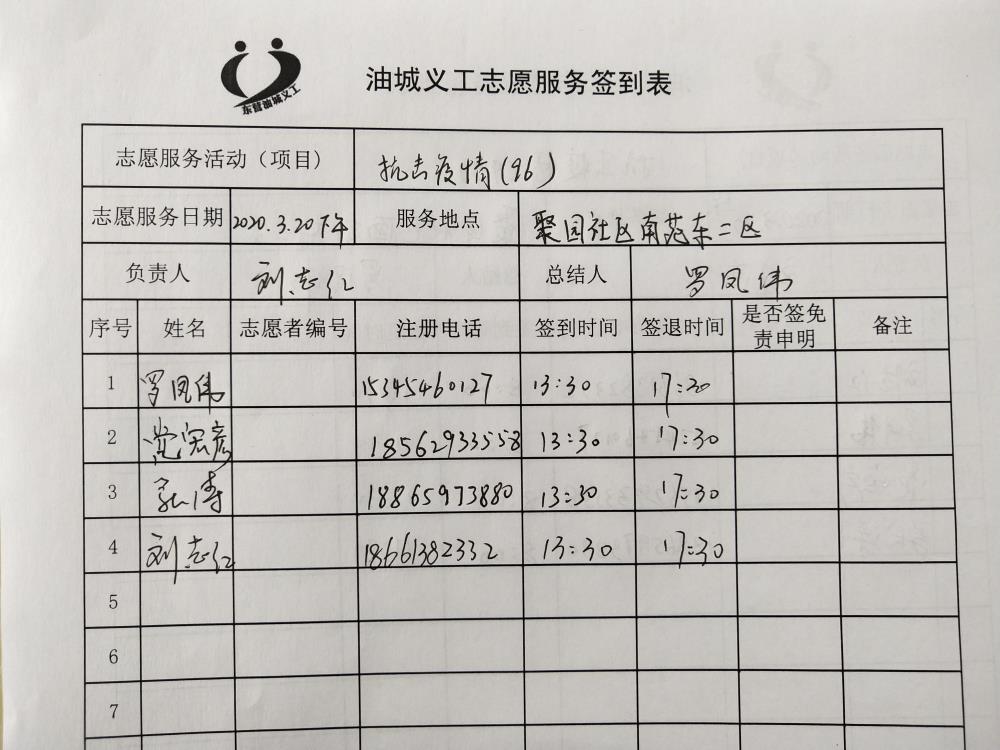 东营油城义工
油城义工志愿服务签到表
志愿服务活动（项目） 抗击疫情(96)
志愿服务日期 2020.3.20下午 服务地点 聚园社区南苑东二区
负责人 刘志红 总结人 罗凤伟
序号 姓名 志愿者编号 注册电话 签到时间 签退时间 是否签免责申明 备注
1 罗凤伟 15345460127 13:30 17:30
2 党宏彦 18562933558 13:30 17:30
3 张涛 18865973880 13:30 17:30
4 刘志红 18661382332 13:30 17:30
5
6
7